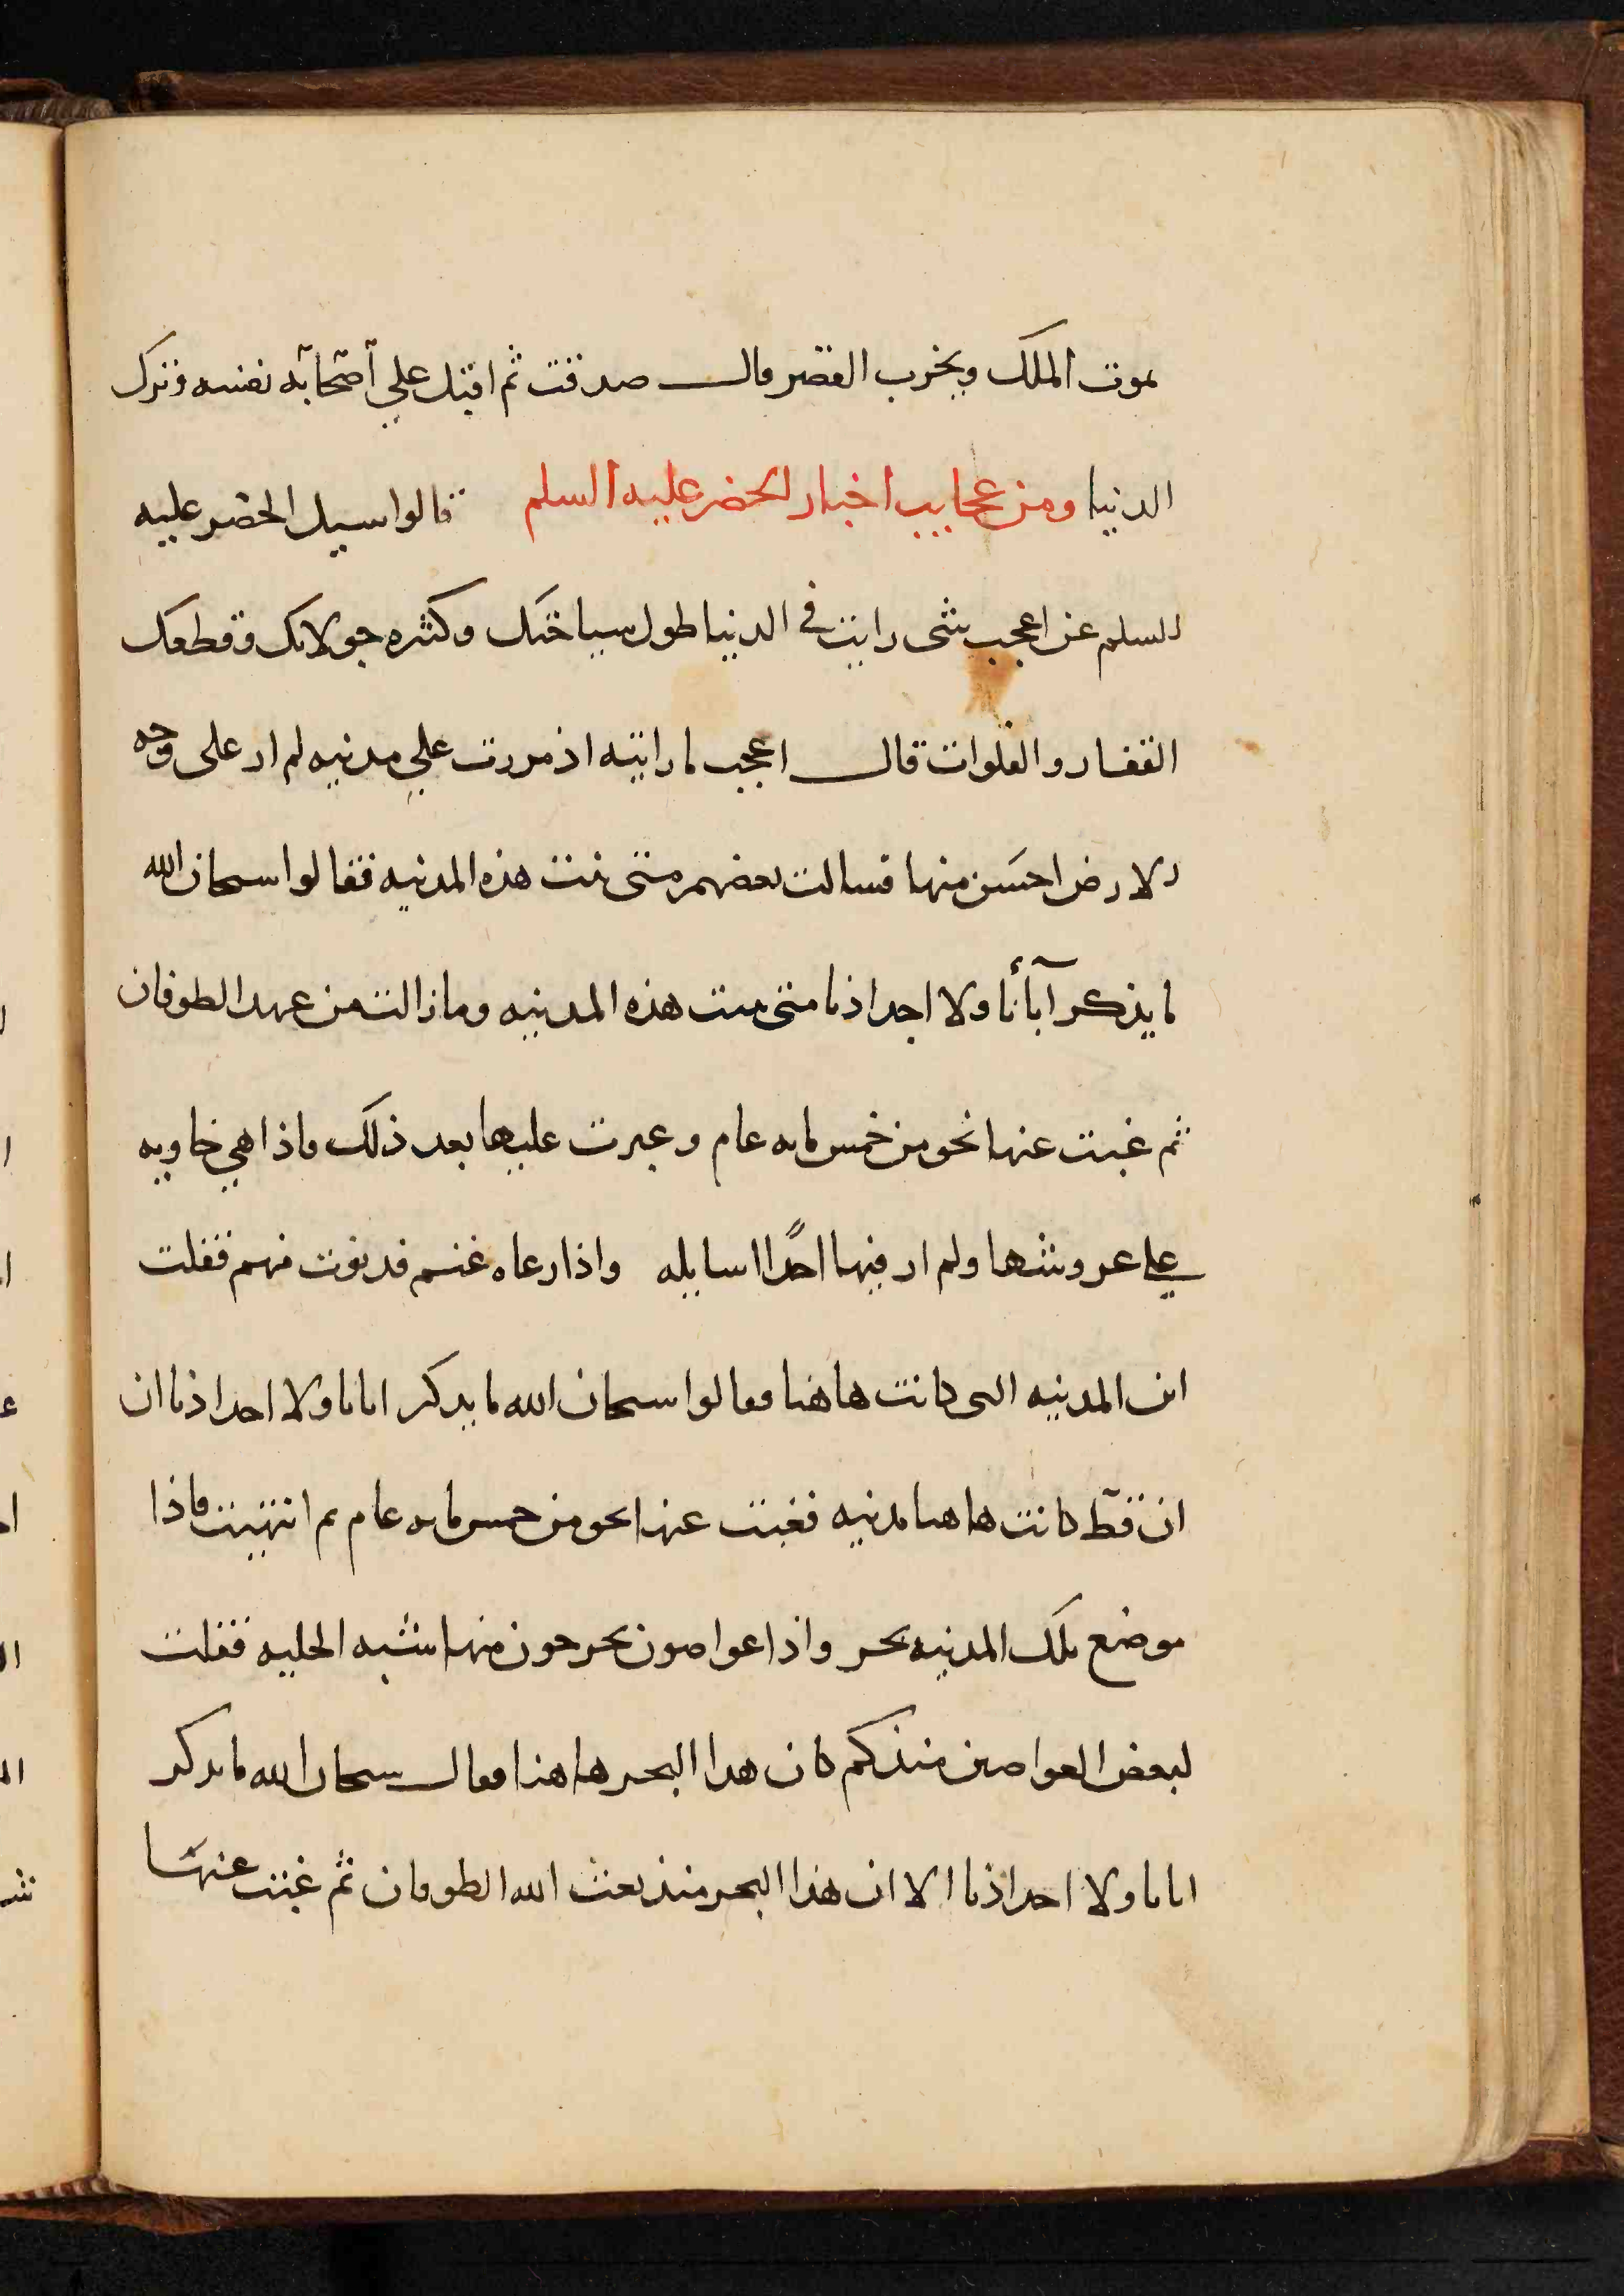 يموت الملك ويخرب القصر قال صدقت ثم اقبل علي اصحابه نفسه وترك
الدنيا ومن عجايب اخبار الخضر عليه السلم قالوا سيل الخضر عليه
السلم عن اعجب شى رايت في الدنيا طول سياحتك وكثره جولانك وقطعك
القفار والفلوات قال اعجب ما رايته اذ مررت علي مدنيه لم ار على وجه
الارض احسن منها فسالت بعضهم متى بنيت هذه المدنيه فقالوا سبحان الله
ما يذكر آبأنا ولا اجداذنا متى بنيت هذه المدنيه وما زالت من عهد الطوفان
ثم غبت عنها نحو من خمس مايه عام وعبرت عليها بعد ذلك فاذا هي خاويه
علي عروشها ولم ار فيها احدًا اسايله واذا رعاه غنم فدنوت منهم فقلت
اين المدنيه التى كانت هاهنا فقالوا سبحان الله ما يذكر ابانا ولا اجداذنا ان
ان قط كانت هاهنا مدنيه فغبت عنها نحو من خمس مايه عام ثم انتهيت فاذا
موضع تلك المدنيه بحر واذا غواصون يخرجون منها شبه الحليه فقلت
لبعض الغواصين منذ كم كان هذا البحر هاهنا فقال سبحان الله ما يذكر
ابانا ولا اجداذنا الا ان هذا البحر منذ بعث الله الطوفان ثم غبت عنها